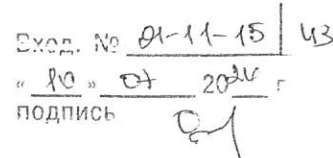 Вход. № 01-11-15 | 43
« 10 » 07 2024 г
ПОДПИСЬ